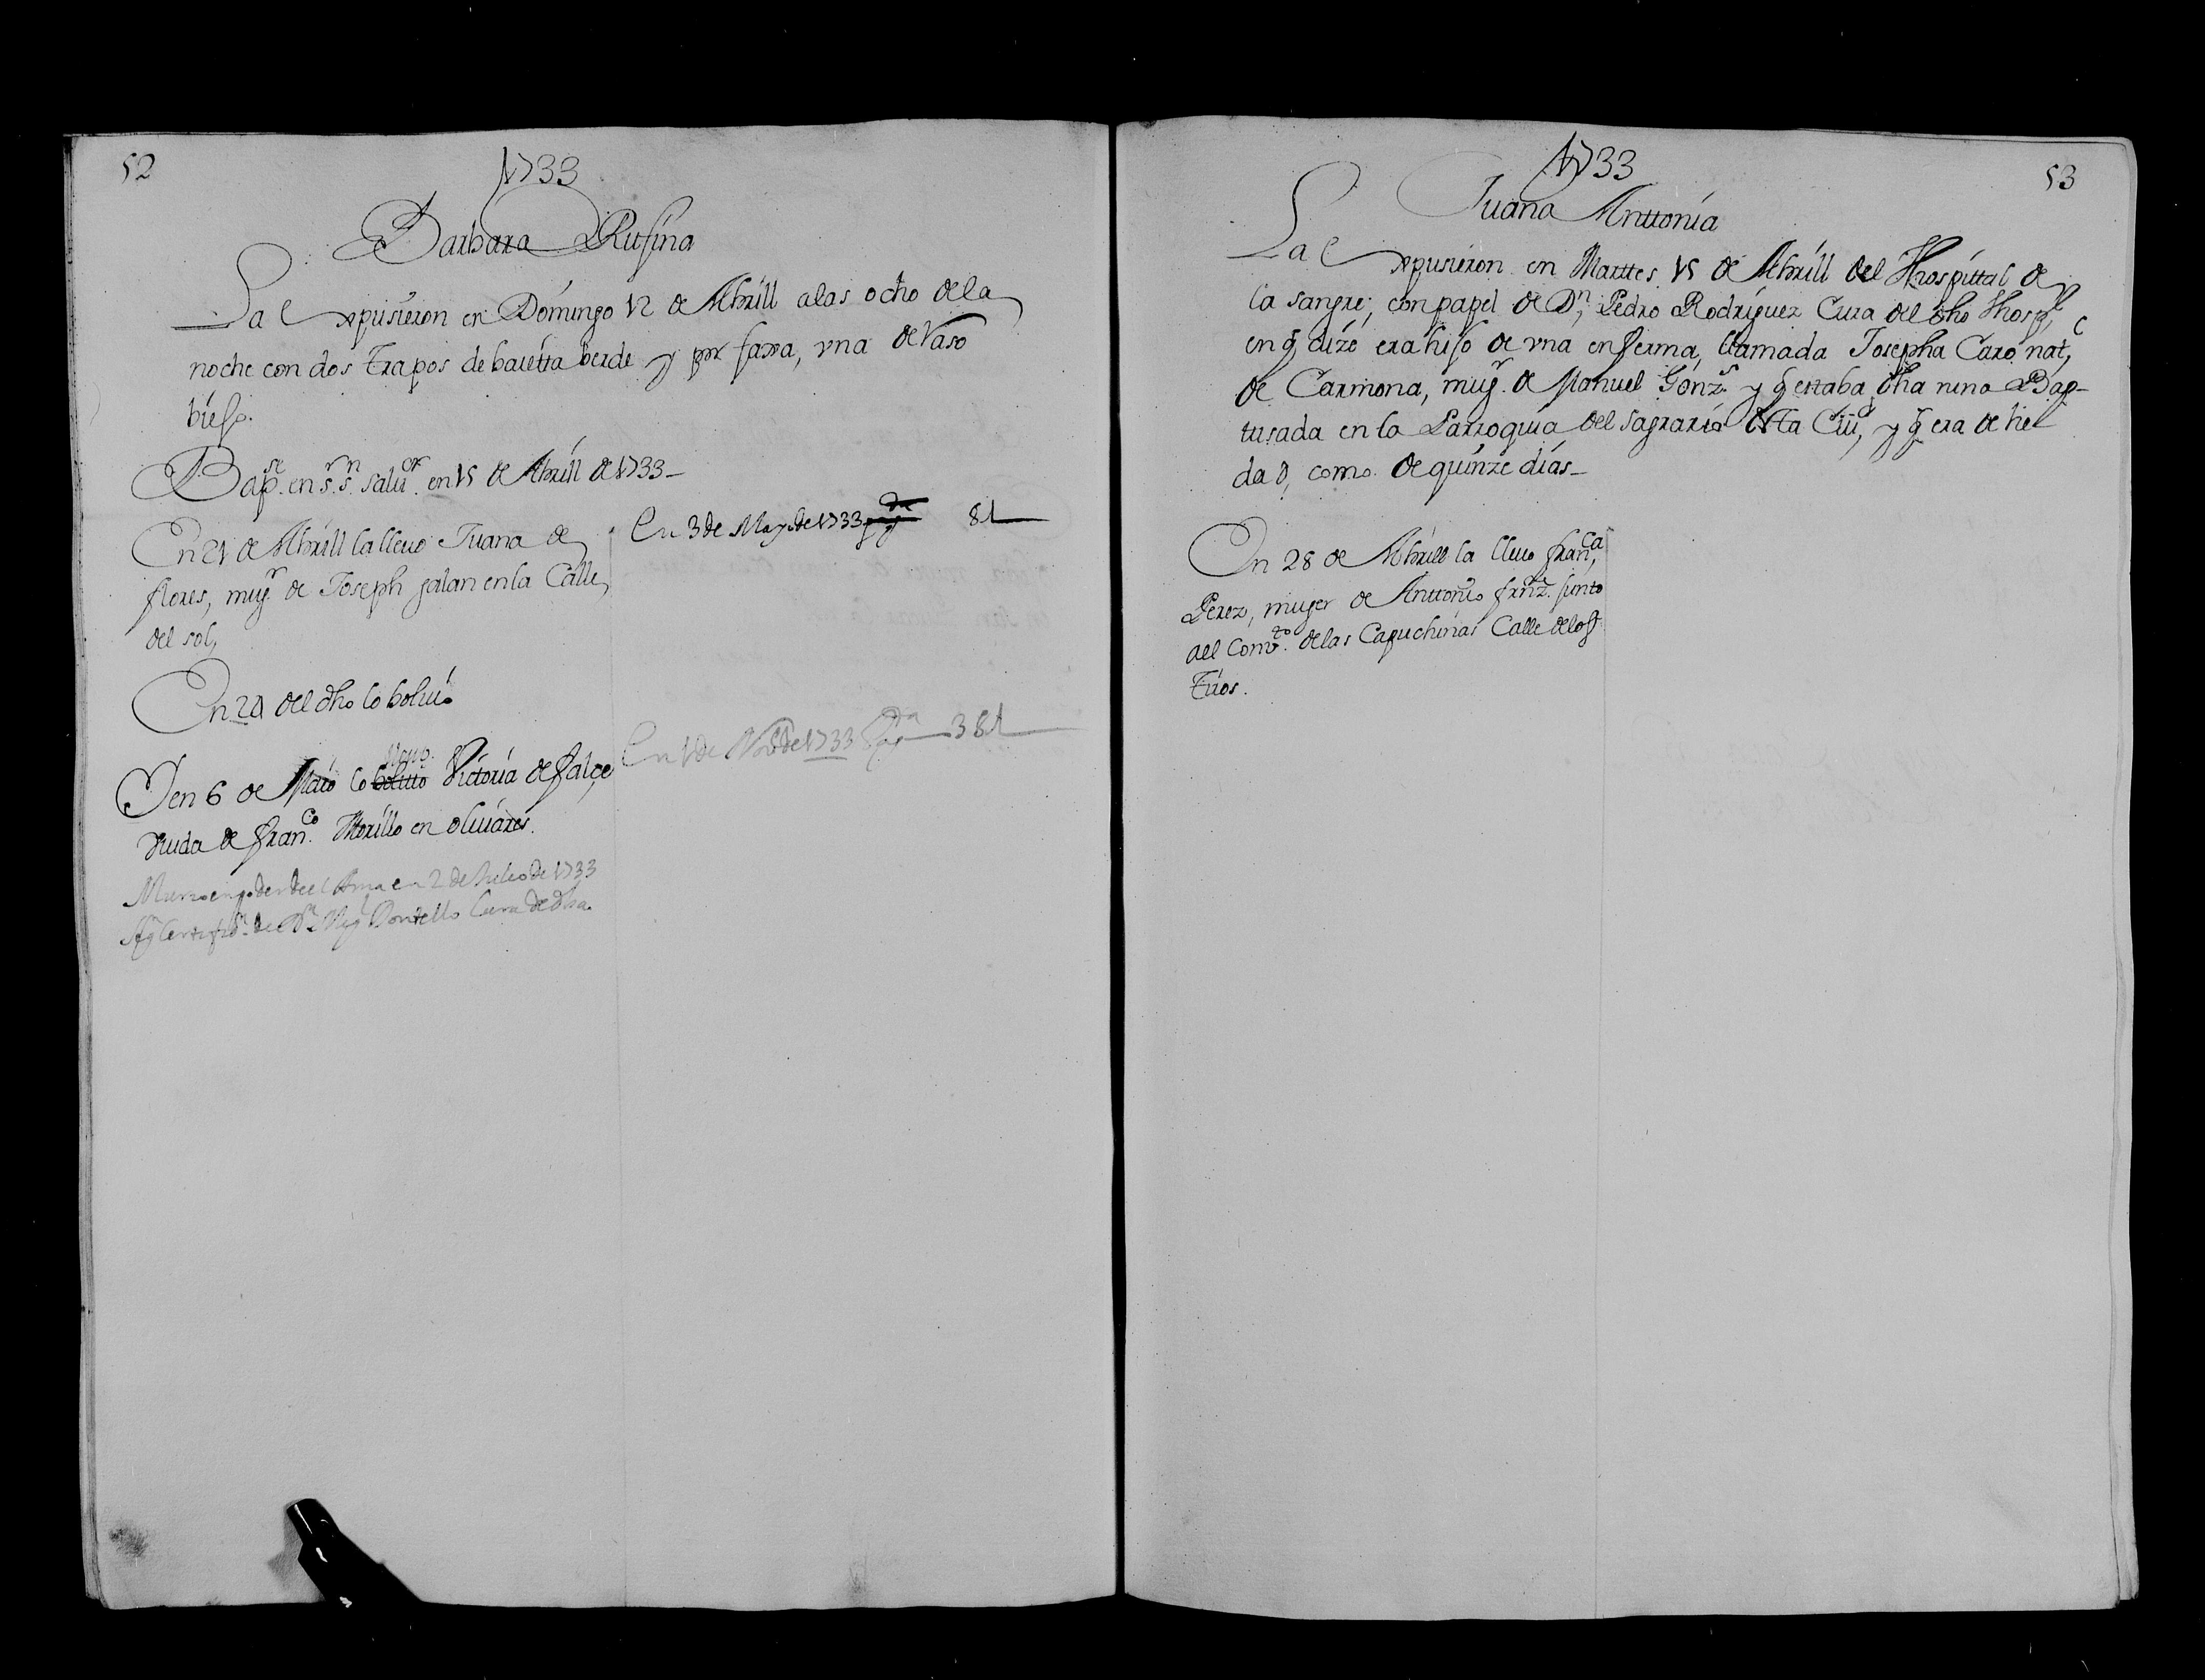 52
1733
Barbara Rufina
La expusieron en Domingo 12 de Abrill a las ocho de la
noche con dos trapos de baietta berde y por faxa, vna de Raso
biejo.
Bap.se en s.r s.n salu.or en 15 de Abrill de 1733
En 21 de Abrill la lleuo Juana de
flores, mug.r de Joseph galan en la Calle
del sol,
En 3 de Mayo de 1733 pag.da 8 1
En 24 del dho lo boluio
lleuo
I en 6 de Maio lo boluio Victoria de falçe
viuda de fran.co Morillo en oliuares.
En 1 de Nou.e de 1733 Pag.da 381
Murio en poder de el Ama en 2 de Julio de 1733
Sg.n Certifi.on de D.n Cura de dha
1733
53
Juana Anttonia
La expusieron en Marttes 15 de Abrill del Hhospittal de
la sangre, con papel de D.n Pedro Rodriguez Cura del dho Hhosp.l,
en q dize era hijo de vna enferma, llamada Josepha Caro nat,
de Carmona, mug.r de Manuel Gonz.s y q estaba dha nina Bap-
tisada en la Parroquia del Sagrario desta Ciu.d, y q era de he
dad, como de quinze dias
En 28 de Abrill la lleuo fran.ca
Perez, muger de Anttonio frnz. junto
ael Comb.to de las Capuchinas Calle de los
tiros.